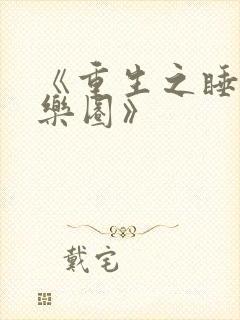 《重生之睡
樂園》
戴宅